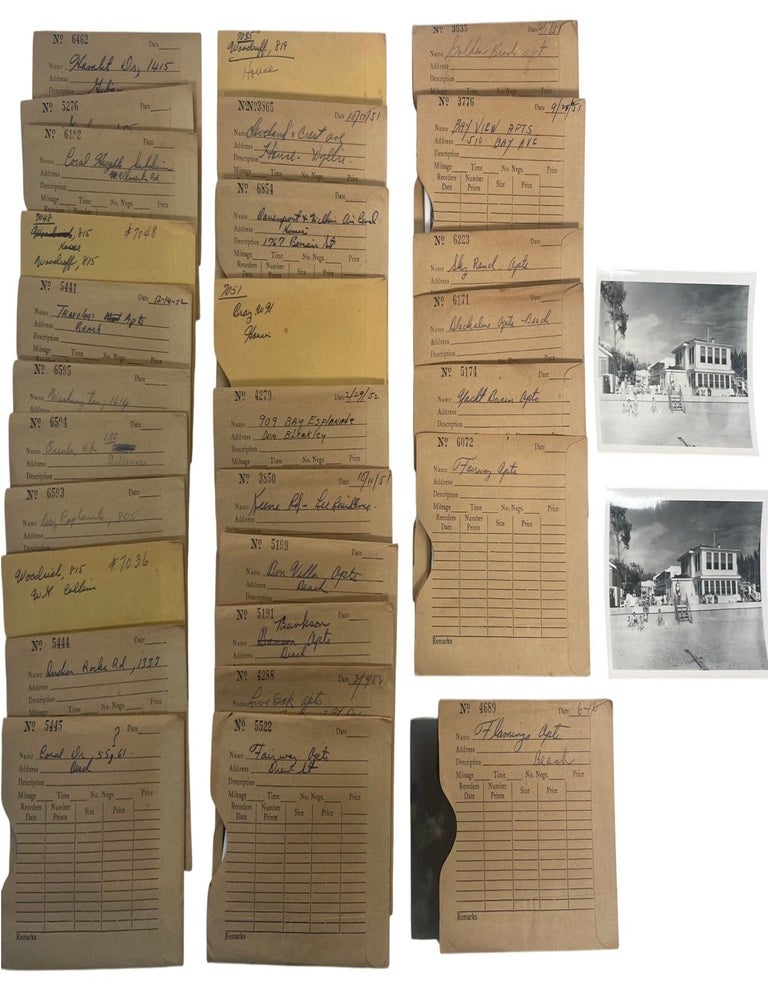 Nº 6462 Date
Name Hamlet Dr, 1415
Address
Description
Nº 5276 Date
Nº 6192 Date
Name Coral Height
Address
Description
Mileage Time No. Negs. Price
7048
815 #7048
House
Woodruff, 815
Nº 5441 Date 12-19-52
Name Travelers Apts
Address Beach
Description
Mileage Time No. Negs. Price
Nº 6595 Date
Name Washington, 1616
Address
Description
Nº 6594 Date
Name Osceola Rd 130
Address Belleair
Description
Nº 6593 Date
Name Bay Esplanade, 805
Address
Description
Woodruff, 815 #7036
W.H. Collins
Nº 5444 Date
Name Indian Rocks Rd, 1333
Address
Description
Mileage Time No. Negs. Price
Nº 5445 Date
?
Name Coral Dr, 55, 61
Address Beach
Description
Mileage Time No. Negs. Price
Reorders Date Number Prints Size Price
Remarks
Woodruff, 819
House
NºNº3865 Date 10/17/51
Name Loveland & Crest ave
Address House - Wyllie
Description
Mileage Time No. Negs. Price
Nº 6854 Date
Name Davenport &
Address Homes
Description 1967
Mileage Time No. Negs. Price
Reorders Number Size Price
7051
House
Nº 4279 Date 2/29/52
Name 909 BAY ESPLANADE
Address DON BLEAKLEY
Description
Mileage Time No. Negs. Price
Nº 3850 Date 10/11/51
Name Keene Rd - Lee Residence
Address
Description
Nº 5199 Date
Name Don Villa Apts
Address Beach
Description
Nº 5191 Date
Bunkson
Name Apts
Address Beach
Description
Nº 4288 Date
Name Live Oak apts
Nº 5522 Date
Name Fairway Apts
Address Drew St
Description
Mileage Time No. Negs. Price
Reorders Date Number Prints Size Price
Remarks
Nº 3535 Date
Name Golden Beach apt
Address
Description
Nº 3776 Date 9/20/51
Name BAY VIEW APTS
Address 510 BAY AVE
Description
Mileage Time No. Negs. Price
Reorders Date Number Prints Size Price
Nº 6223 Date
Name Sky Ranch Apts
Address
Description
Nº 6171 Date
Name Blackstone Apts - Beach
Address
Description
Mileage Time No. Negs. Price
Nº 5174 Date
Name Yacht Basin Apts
Address
Description
Mileage Time No. Negs. Price
Nº 6072 Date
Name Fairway Apts
Address
Description
Mileage Time No. Negs. Price
Reorders Date Number Prints Size Price
Remarks
Nº 4689 Date 6-18
Name Flamingo Apts
Address Beach
Description
Mileage Time No. Negs. Price
Reorders Date Number Prints Size Price
Remarks